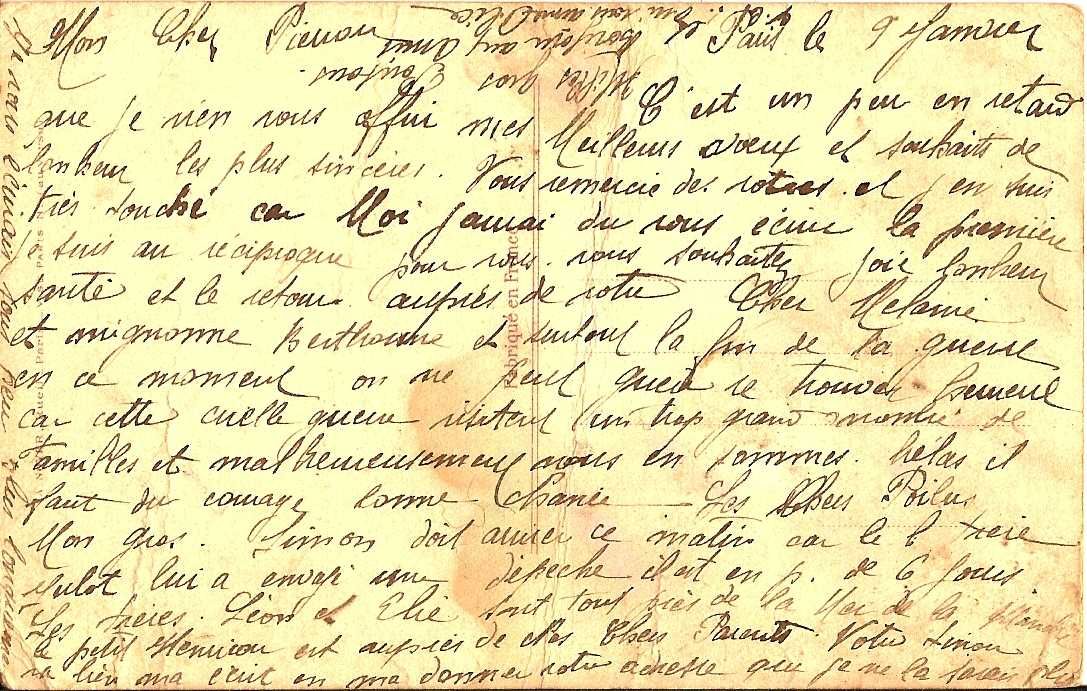 Mon Cher Pierrau Paris le 9 Janvier
C'est un peu en retard
que je vien vous offrir mes Meilleurs voeux et souhaits de
bonheur les plus sincères. Vous remercie des votres et j'en suis
très touché car Moi j'amai du vous écrire la première
je suis au réciproque pour vous. vous souhaiter joie bonheur
santé et le retour auprès de votre Cher Melanie
et mignonne Berthonne et surtout la fin de la guerre
en ce moment on ne peut guère se trouver heureux
car cette cruelle guerre un trop grand nombre de
familles et malheureusement nous en sommes. hélas il
faut du courage bonne Chance — Les Chers Poilus
Mon gros. Simon doit arriver ce matin car le
lui a envoyé une dépêche il est en p. de 6 jours
Les frères. Léon et Elie sont tout près de la Mer de la
le petit Henricou est auprès de Nos Chers Parents. Votre Simon
va bien ma écrit en ma donner votre adresse que je ne la savais plus
Fabriqué en France